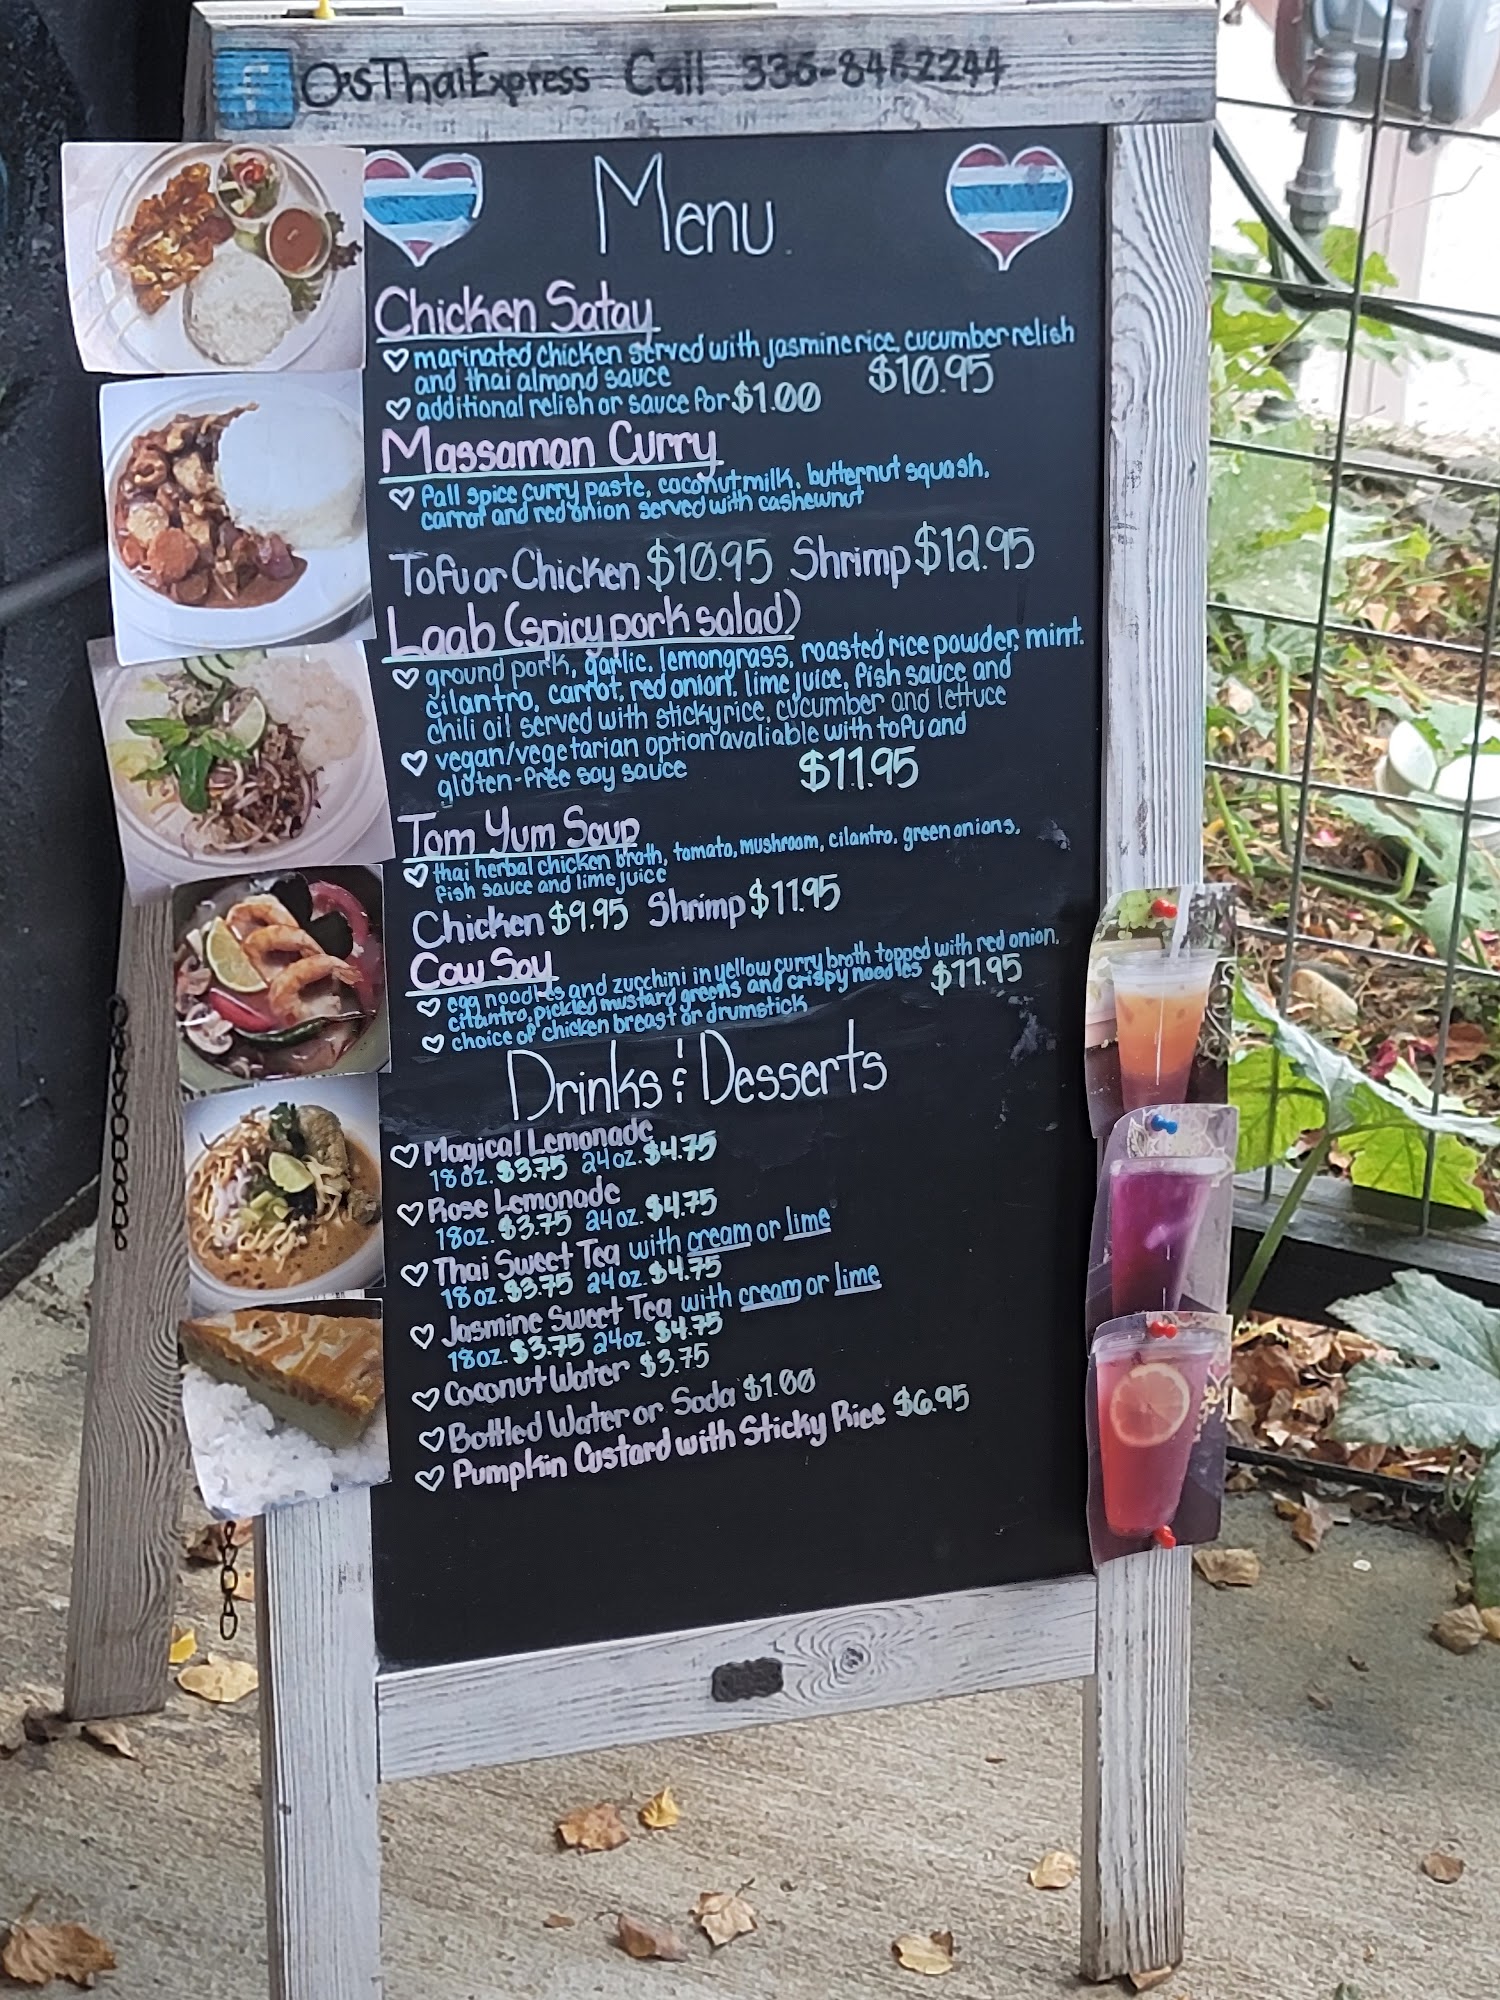 f O'sThaiExpress Call 336-8462244
Menu
Chicken Satay
marinated chicken served with jasmine rice, cucumber relish
and thai almond sauce $10.95
additional relish or sauce for $1.00
Massaman Curry
fall spice curry paste, coconut milk, butternut squash,
carrot and red onion served with cashewnut
Tofu or Chicken $10.95 Shrimp $12.95
Laab (spicy pork salad)
ground pork, garlic, lemongrass, roasted rice powder, mint,
cilantro, carrot, red onion, lime juice, fish sauce and
chili oil served with sticky rice, cucumber and lettuce
vegan/vegetarian option avaliable with tofu and
gluten-free soy sauce $11.95
Tom Yum Soup
thai herbal chicken broth, tomato, mushroom, cilantro, green onions,
fish sauce and lime juice
Chicken $9.95 Shrimp $11.95
Cow Soy
egg noodles and zucchini in yellow curry broth topped with red onion,
cilantro, pickled mustard greens and crispy noodles $11.95
choice of chicken breast or drumstick
Drinks & Desserts
Magical Lemonade
18oz. $3.75 24oz. $4.75
Rose Lemonade
18oz. $3.75 24oz. $4.75
Thai Sweet Tea with cream or lime
18oz. $3.75 24oz. $4.75
Jasmine Sweet Tea with cream or lime
18oz. $3.75 24oz. $4.75
Coconut Water $3.75
Bottled Water or Soda $1.00
Pumpkin Custard with Sticky Rice $6.95